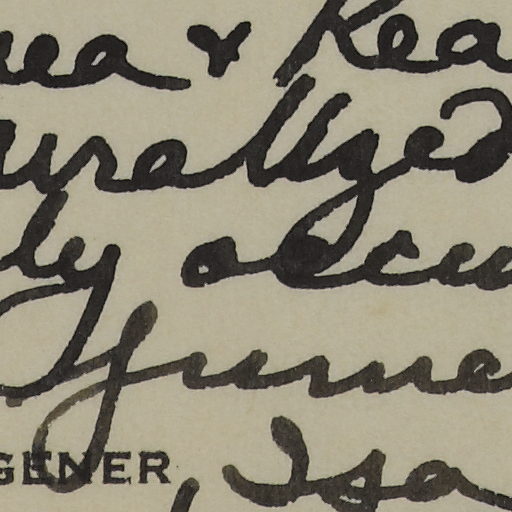 uea & Rea
uralized
ly occu
June
GENER Isa